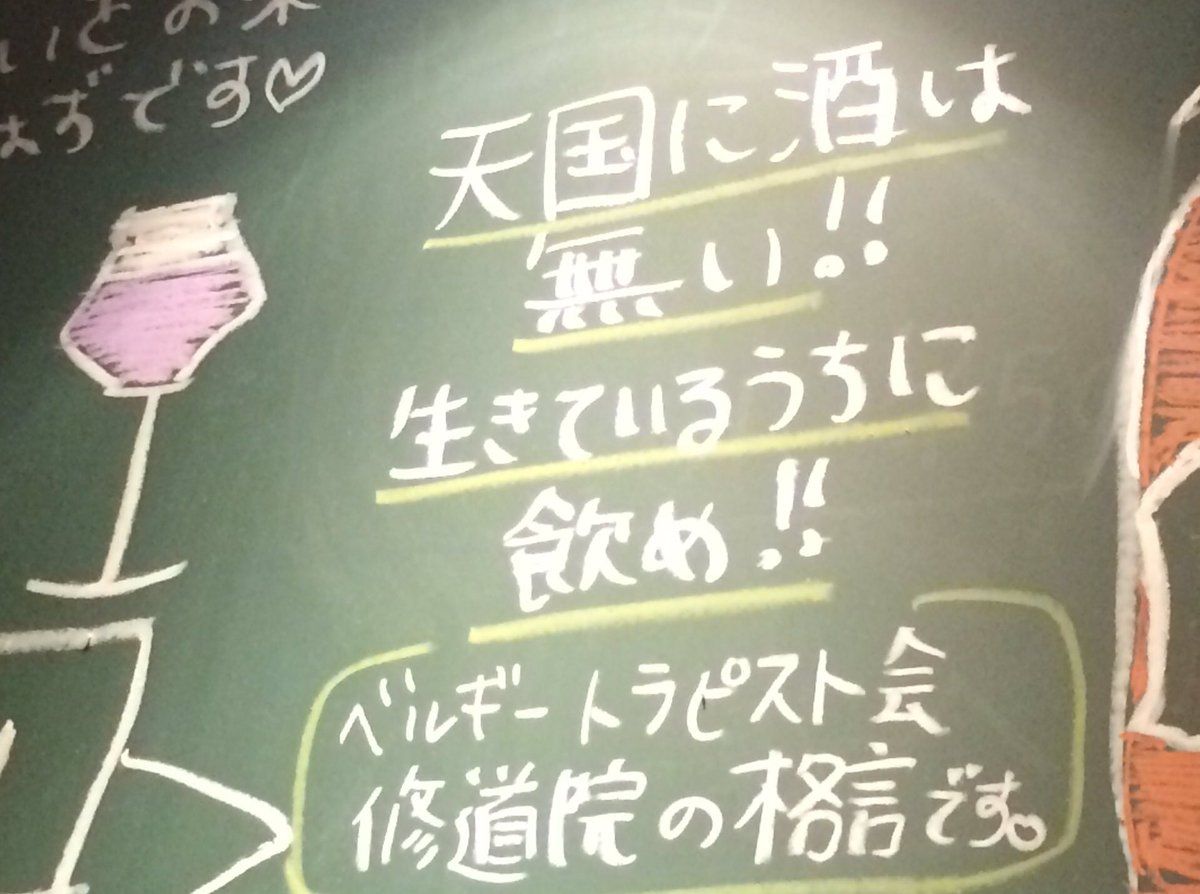 いとの果
はずです♡
天国に酒は
無い!!
生きているうちに
飲め!!
ベルギートラピスト会
修道院の格言です。